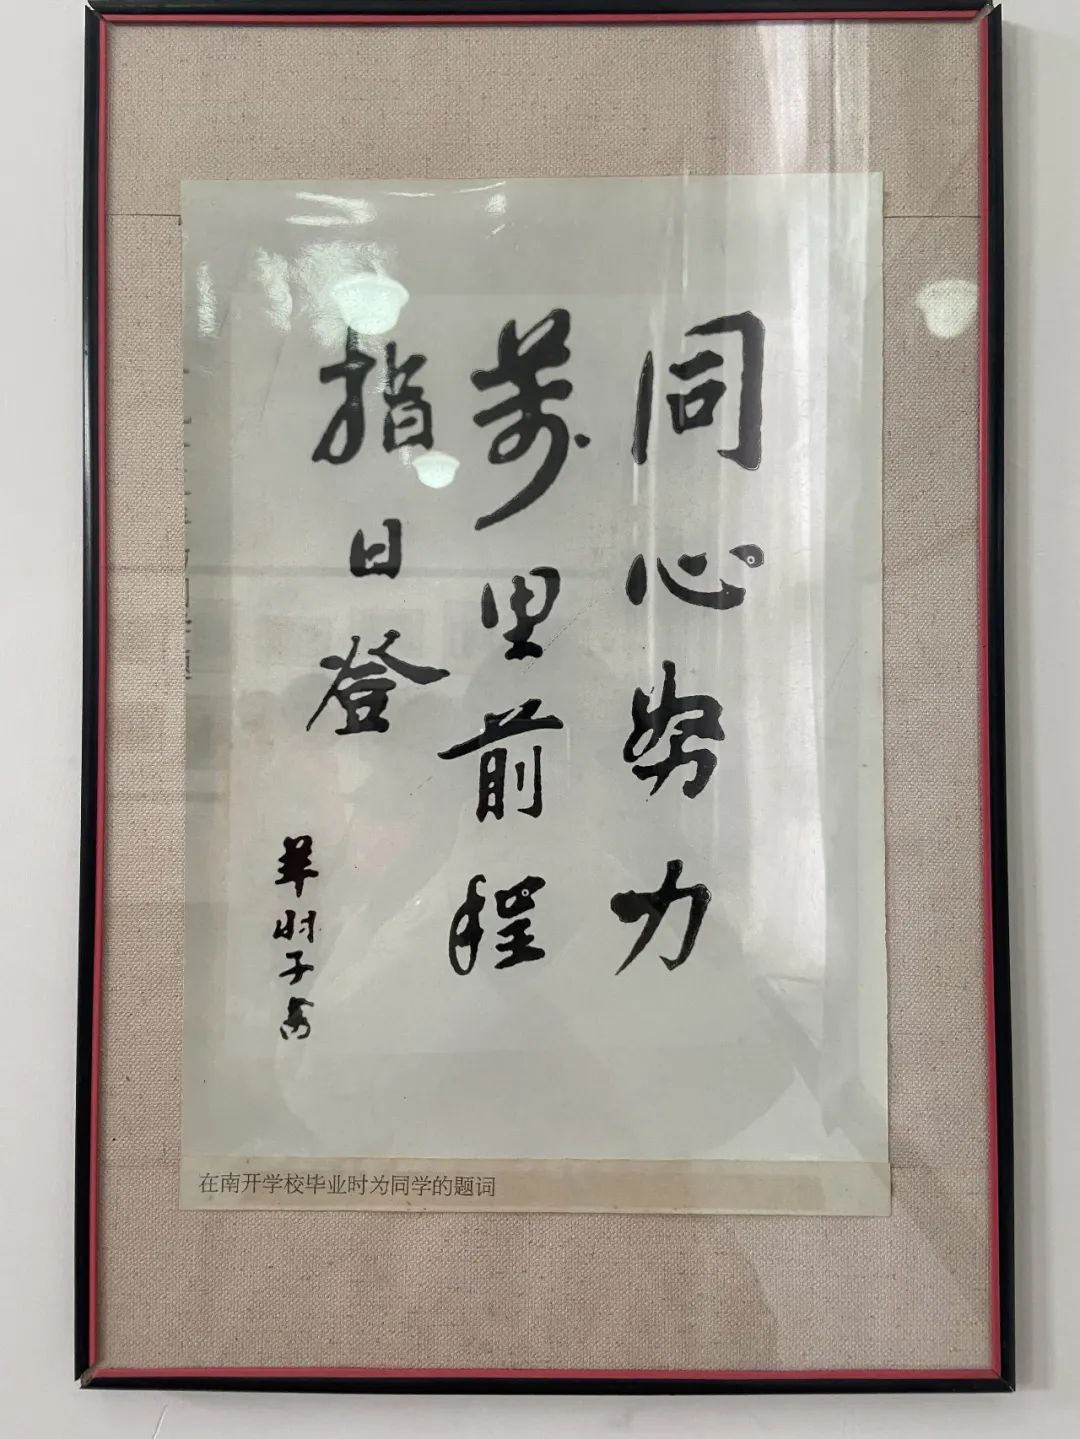 同心努力
萬里前程
指日登
在南开学校毕业时为同学的题词